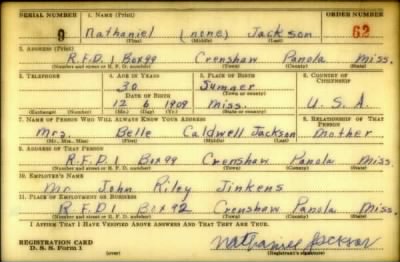 SERIAL NUMBER 1. NAME (Print) ORDER NUMBER
9 Nathaniel (none) Jackson 62
(First) (Middle) (Last)
2. ADDRESS (Print)
R.F.D.1 Box 99 Crenshaw Panola Miss.
(Number and street or R. F. D. number) (Town) (County) (State)
3. TELEPHONE 4. AGE IN YEARS 5. PLACE OF BIRTH 6. COUNTRY OF CITIZENSHIP
30 Sumner
DATE OF BIRTH (Town or county)
12 6 1909 Miss. U.S.A.
(Exchange) (Number) (Mo.) (Day) (Yr.) (State or country)
7. NAME OF PERSON WHO WILL ALWAYS KNOW YOUR ADDRESS 8. RELATIONSHIP OF THAT PERSON
Mrs. Belle Caldwell Jackson Mother
(Mr., Mrs., Miss) (First) (Middle) (Last)
9. ADDRESS OF THAT PERSON
R.F.D.1 Box 99 Crenshaw Panola Miss
(Number and street or R. F. D. number) (Town) (County) (State)
10. EMPLOYER'S NAME
Mr. John Riley Jinkens
11. PLACE OF EMPLOYMENT OR BUSINESS
R.F.D.1 Box 92 Crenshaw Panola Miss.
(Number and street or R. F. D. number) (Town) (County) (State)
I AFFIRM THAT I HAVE VERIFIED ABOVE ANSWERS AND THAT THEY ARE TRUE.
REGISTRATION CARD
D. S. S. Form 1 (over) Nathaniel Jackson
(Registrant's signature)